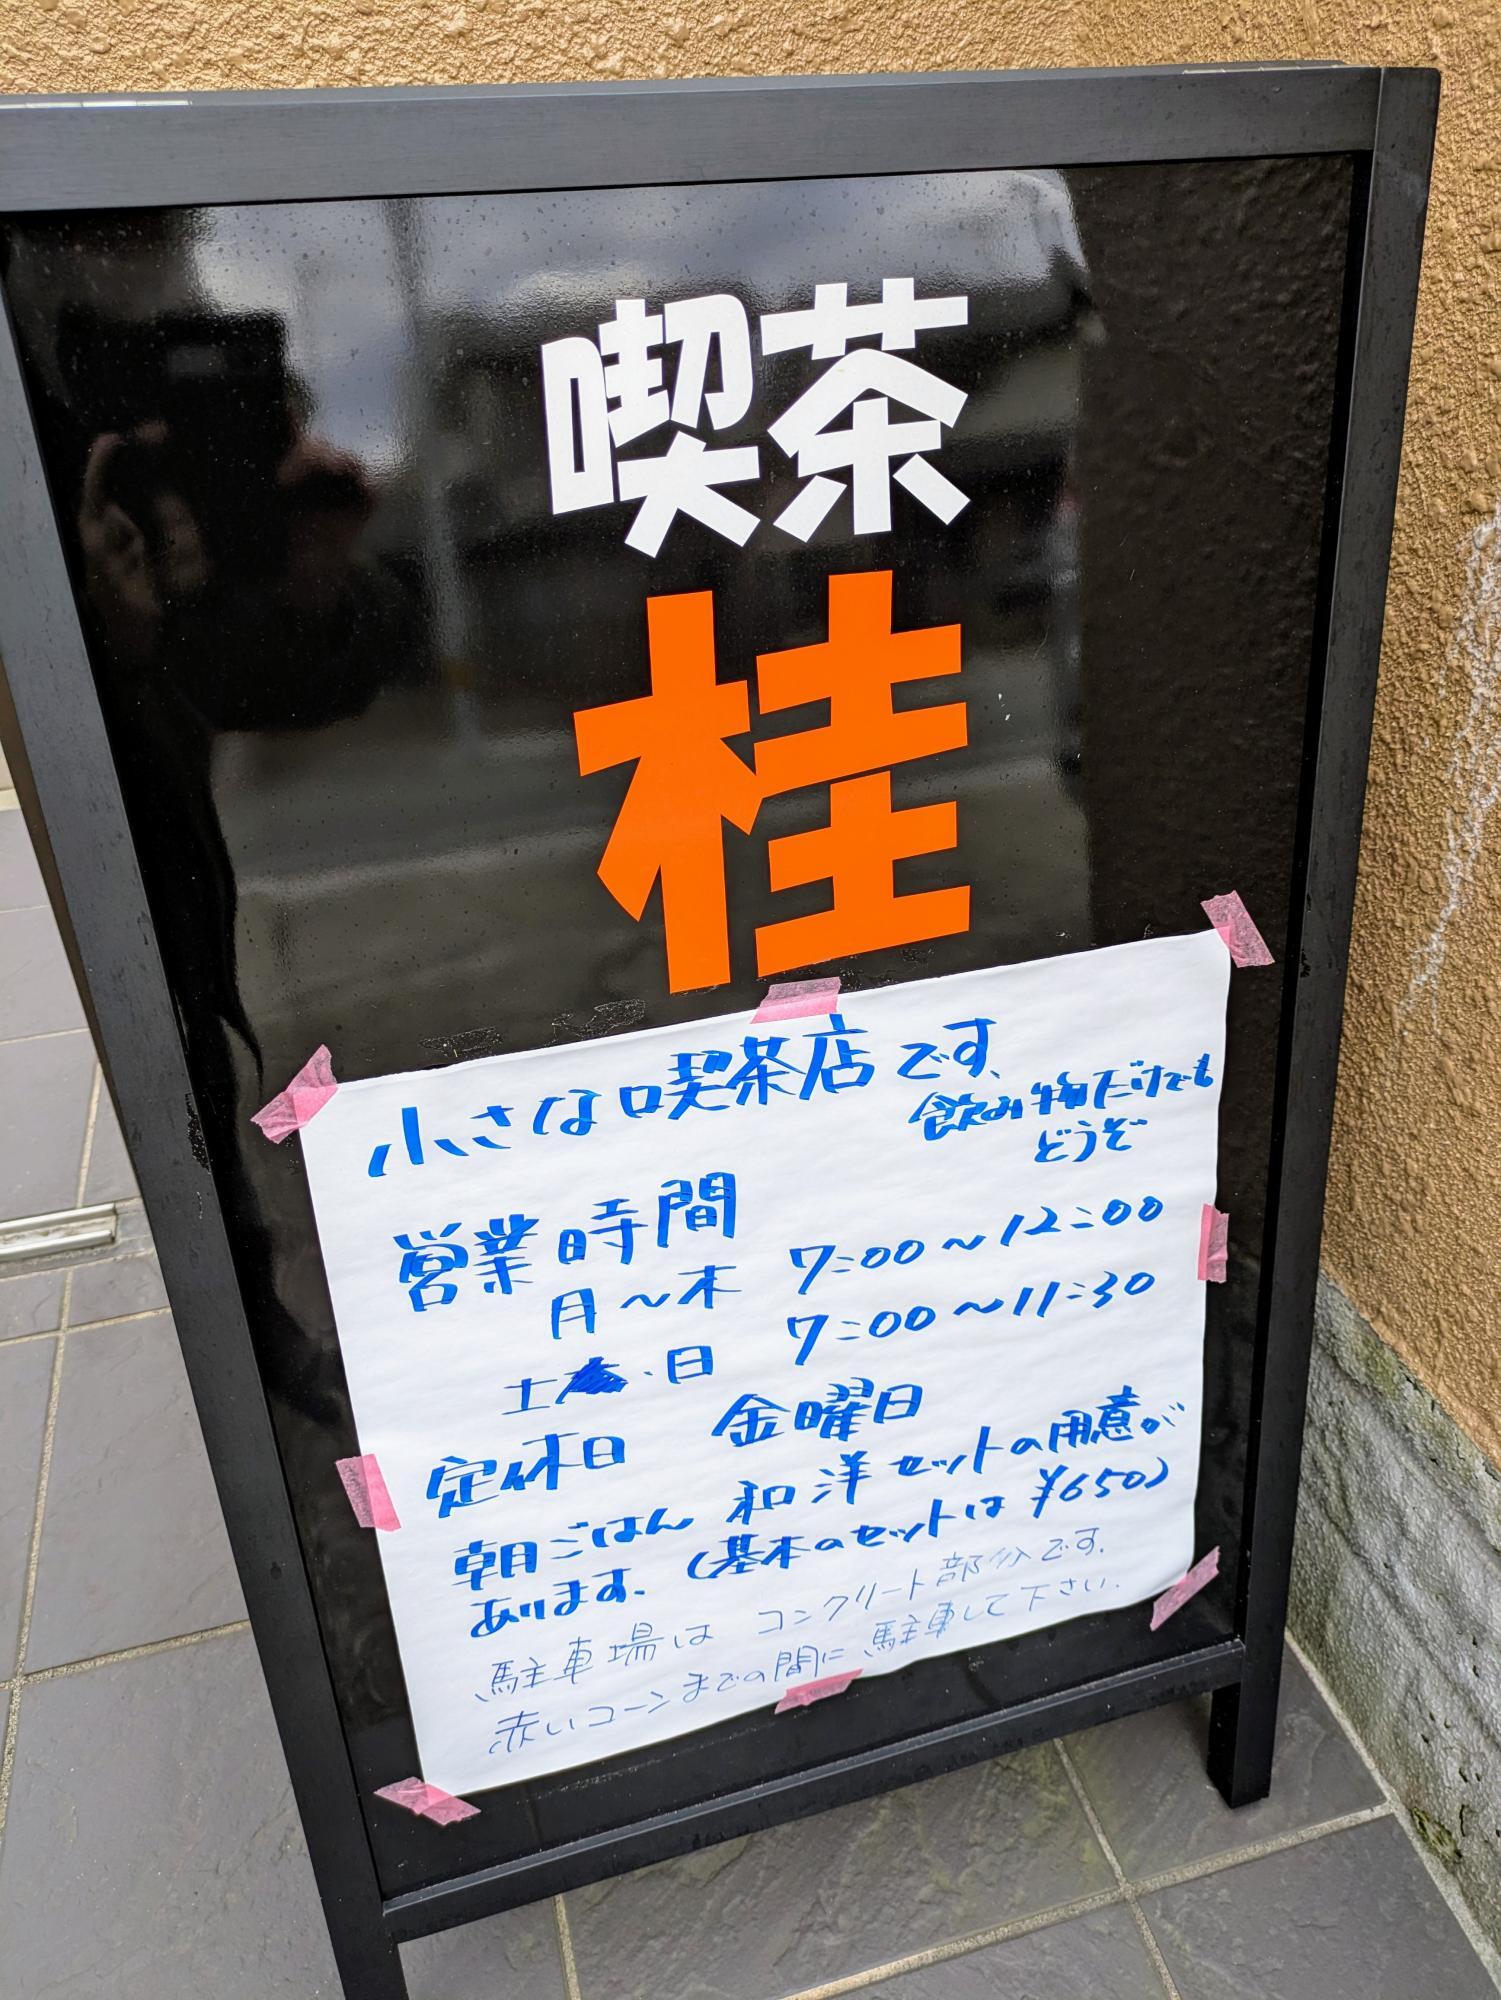 喫茶
桂
小さな喫茶店です、
飲み物だけでも
どうぞ
営業時間
月～木 7:00～12:00
土・日 7:00～11:30
定休日 金曜日
朝ごはん 和洋セットの用意が
あります。(基本のセットは ¥650)
駐車場は コンクリート部分です.
赤いコーンまでの間に駐車して下さい.